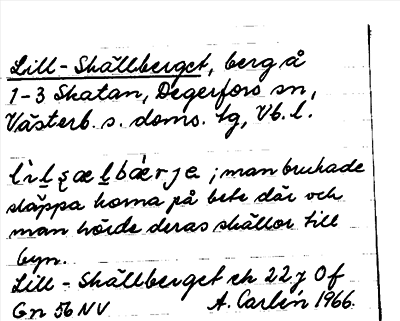 Lill-Skällberget, berg å
1-3 Skatan, Degerfors sn,
Västerb. s. doms. tg, Vb. l.
man brukade
släppa korna på bete där och
man hörde deras skällor till
byn.
Lill-Skällberget ek 22 j Of
Gn 56 NV A. Carlén 1966.